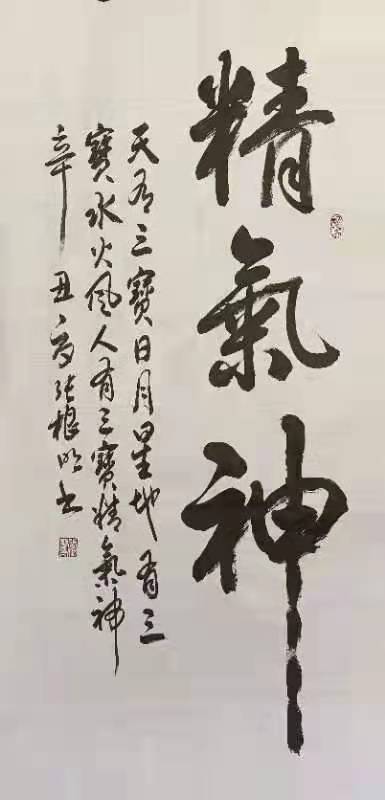 精氣神
天有三寶日月星地有三
寶水火風人有三寶精氣神
辛丑春張根明書